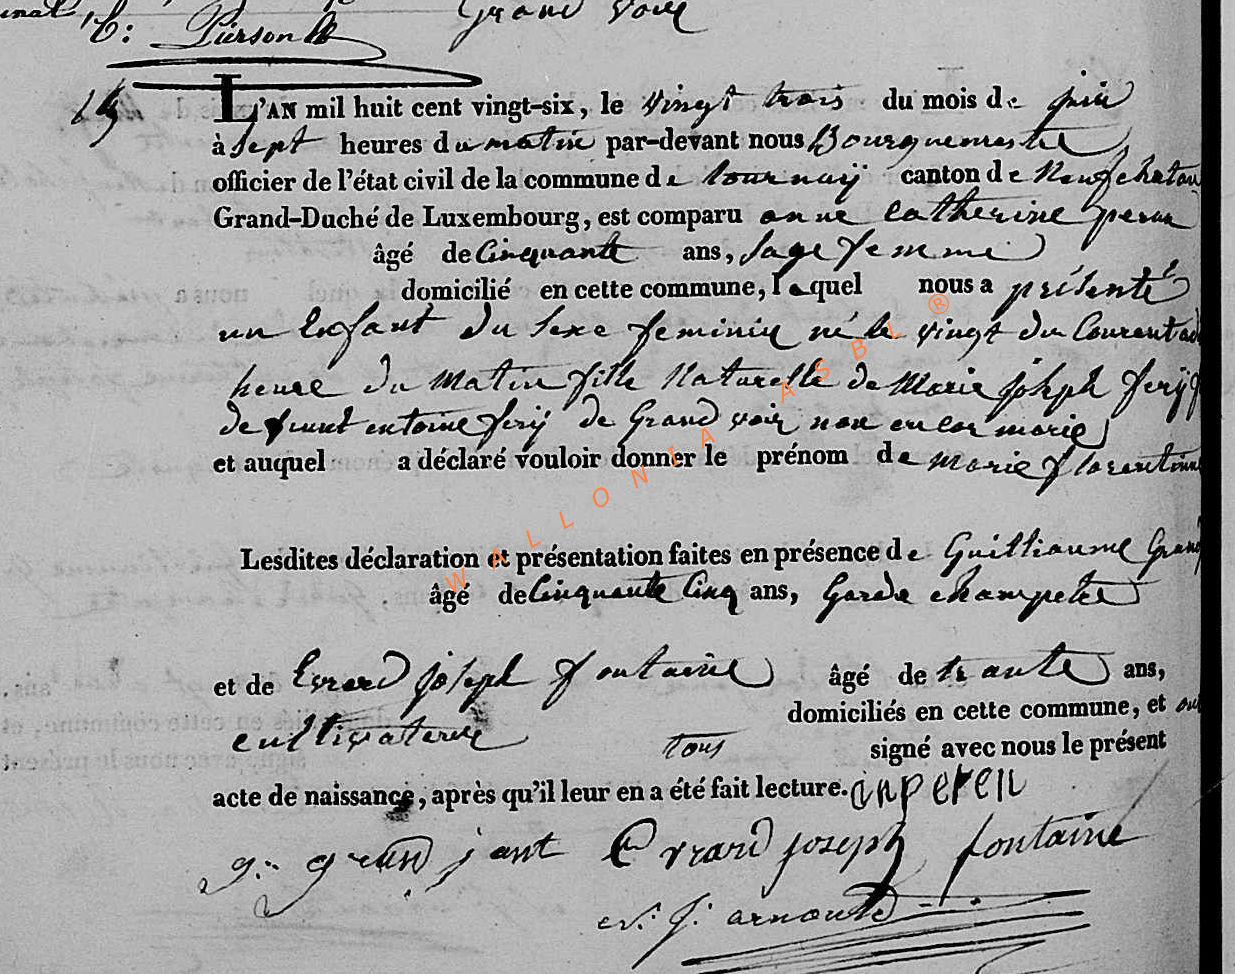 Grand Voir
C: Pierson
19
L'AN mil huit cent vingt-six, le vingt trois du mois de juin
à sept heures du matin par-devant nous Bourguemestre
officier de l'état civil de la commune de tournay canton de Neufchatau
Grand-Duché de Luxembourg, est comparu anne Catherine peran
âgé de Cinquante ans, Sage femme
domicilié en cette commune, laquel nous a présenté
un Enfant du Sexe feminin né le vingt du Courent a
heure du Matin fille Naturelle de Marie joseph ferij f
de feu antoine ferij de Grand voir non encor marie
et auquel a déclaré vouloir donner le prénom de marie florentinne
Lesdites déclaration et présentation faites en présence de Guilliaume Grand
âgé de Cinquante Cinq ans, Garde champetre
et de Evrard joseph fontaine âgé de trante ans,
cultivateur domiciliés en cette commune, et ont
tous signé avec nous le présent
acte de naissance, après qu'il leur en a été fait lecture. an peren
g: grand jant Evrard joseph fontaine
J: arnould
WALLONIA ASBL ®